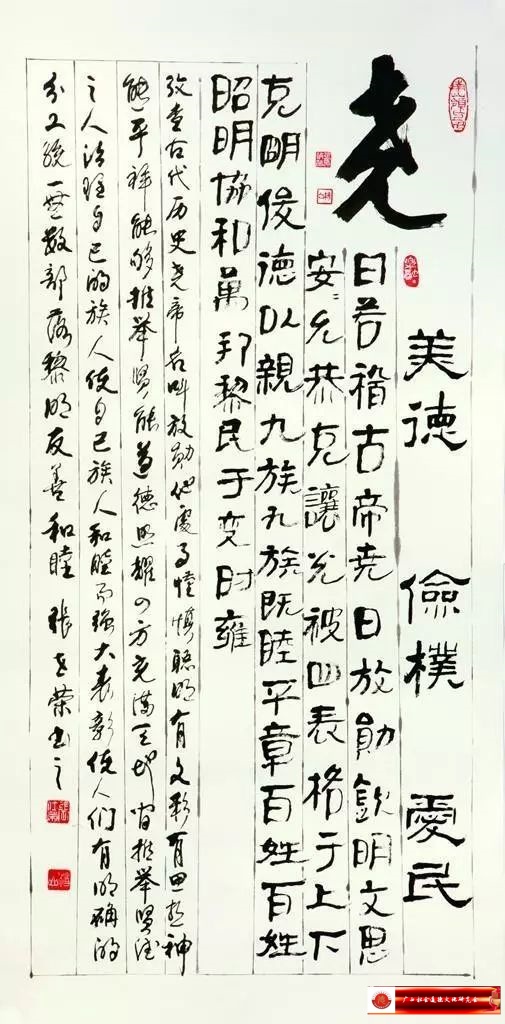 尧
美德 儉樸 愛民
曰若稽古帝尧曰放勛欽明文思
安=允恭克讓光被四表格于上下
克明俊德以親九族九族既睦平章百姓百姓
昭明協和萬邦黎民于变时雍
攷查古代历史尧帝名叫放勋他處事慎聪明有文彩有思想神
態平祥能够推举贤能道德照耀四方充满天地间推举贤德
之人治理自己的族人使自己族人和睦而强大表彰使人们有明确的
分工统一数部落黎明友善和睦 张世荣书之
广西社会道德文化研究会